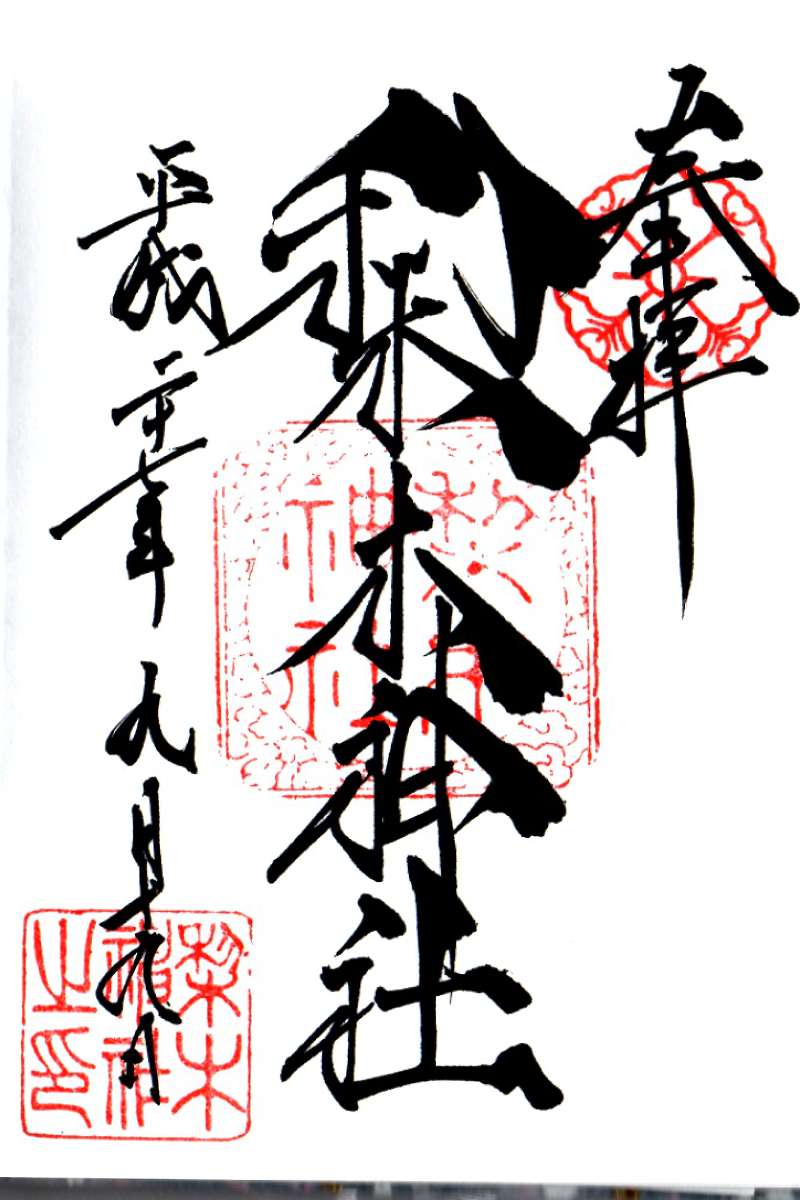 奉拝
梨木神社
平成二十七年九月十九日
梨木
神社
梨木
神社
之印